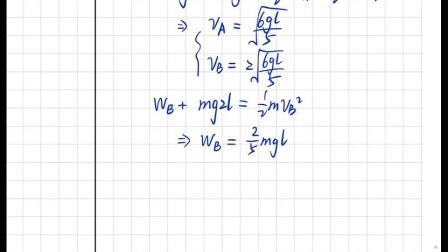 ⇒ { V_A = √(6gl/5)
V_B = 2√(6gl/5)
W_B + mg2l = 1/2 mV_B²
⇒ W_B = 2/5 mgl